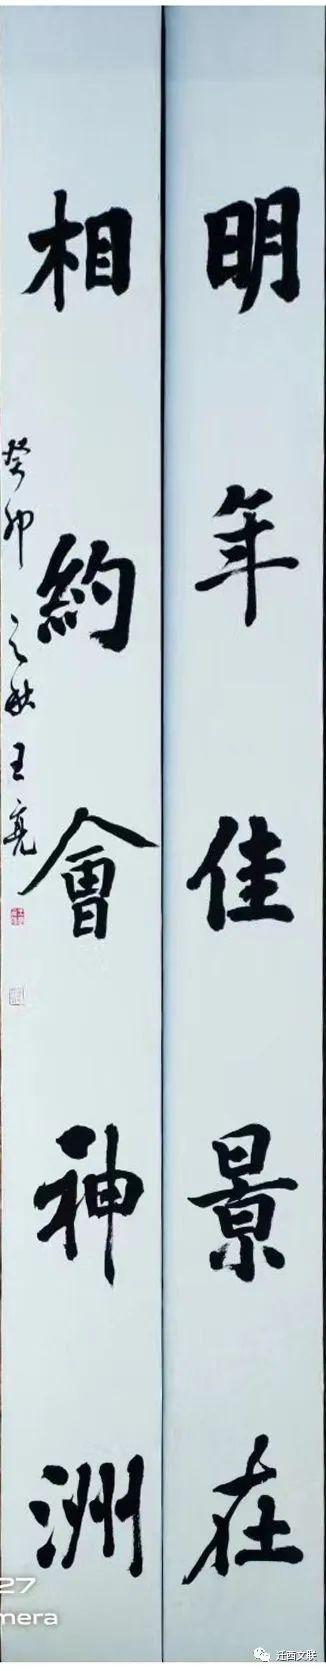 明年佳景在
相約會神洲
癸卯之秋王亮
27
mera
迁西文联